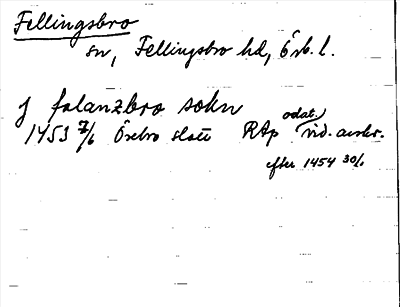 Fellingsbro
sn, Fellingsbro hd, Örb. l.
j falanzbro sokn
1453 7/6 Örebro slott RAp odat. vid. avskr.
efter 1454 30/6